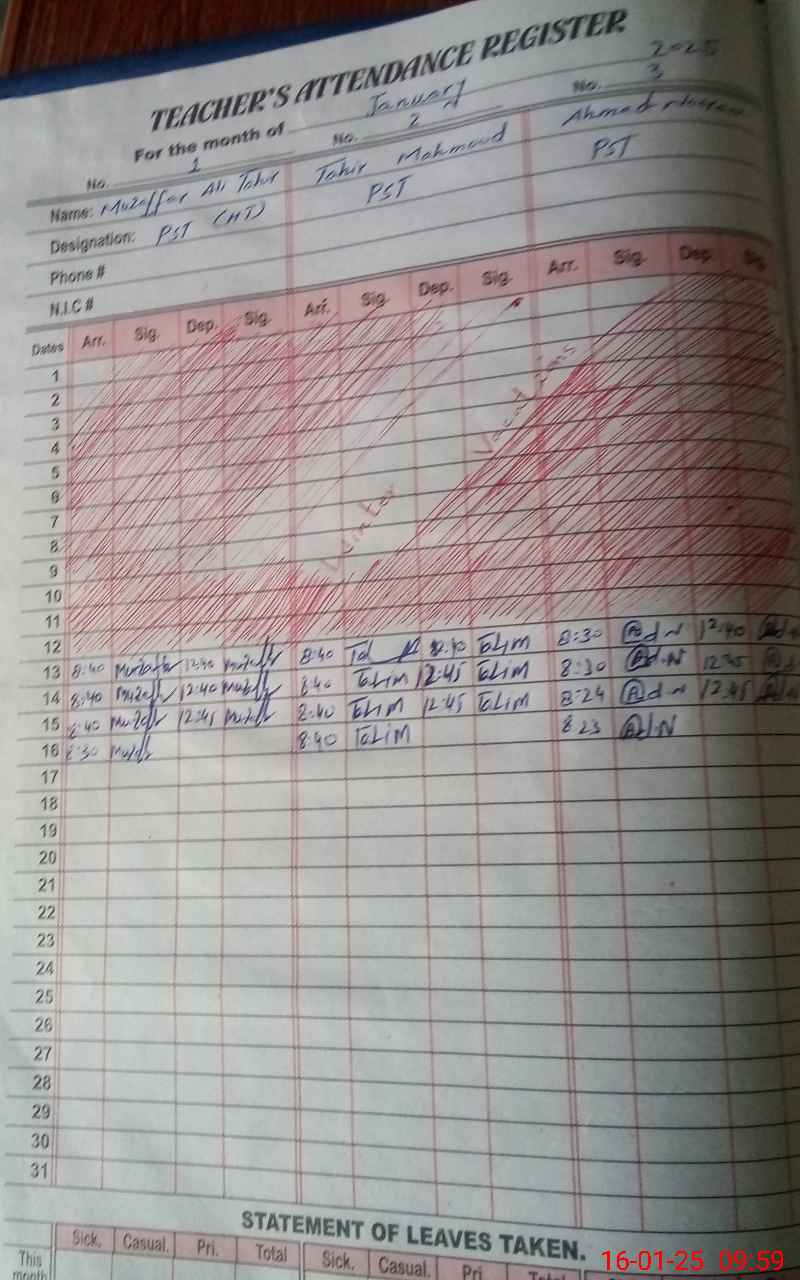 TEACHER'S ATTENDANCE REGISTER
For the month of January 2025
No. 1 No. 2 No. 3
Name: Muzaffar Ali Tahir Tahir Mahmood Ahmad
Designation: PST (HT) PST PST
Phone #
N.I.C #
Dates Arr. Sig. Dep. Sig. Arr. Sig. Dep. Sig. Arr. Sig. Dep. Sig
1
2
3
4
5
6
7
8
9
10
11
Winter Vacations
12
13 8:40 Muzaffar 12:40 Muzaff 8:40 12:40 8:30 12:40
14 8:40 Muzaff 12:40 Muzaff 8:40 12:45 8:30 12:45
15 8:40 Muzaff 12:45 Muzaff 8:40 12:45 8:24 12:45
16 8:30 Muzaff 8:40 8:23
17
18
19
20
21
22
23
24
25
26
27
28
29
30
31
STATEMENT OF LEAVES TAKEN.
Sick. Casual. Pri. Total Sick. Casual. Pri. Total
This month
16-01-25 09:59